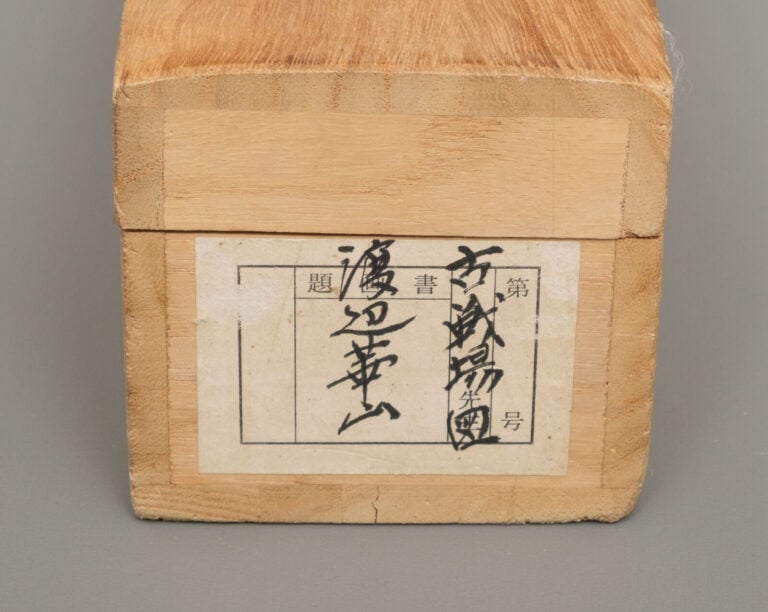 古戦場図
渡辺華山
第 号
先生
書画題